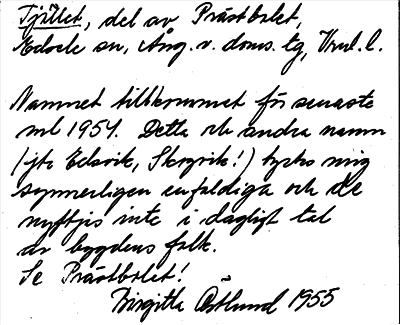 Tjället, del av Prästbolet,
Edsele sn, Ång. v. doms. tg, Vnl. l.
Namnet tillkommet för senaste
ml 1954. Detta och andra namn
(jfr Edsvik, Skogvik!) tycks mig
synnerligen enfaldiga och de
nyttjas inte i dagligt tal
av bygdens folk.
Se Prästbolet!
Birgitta Östlund 1955